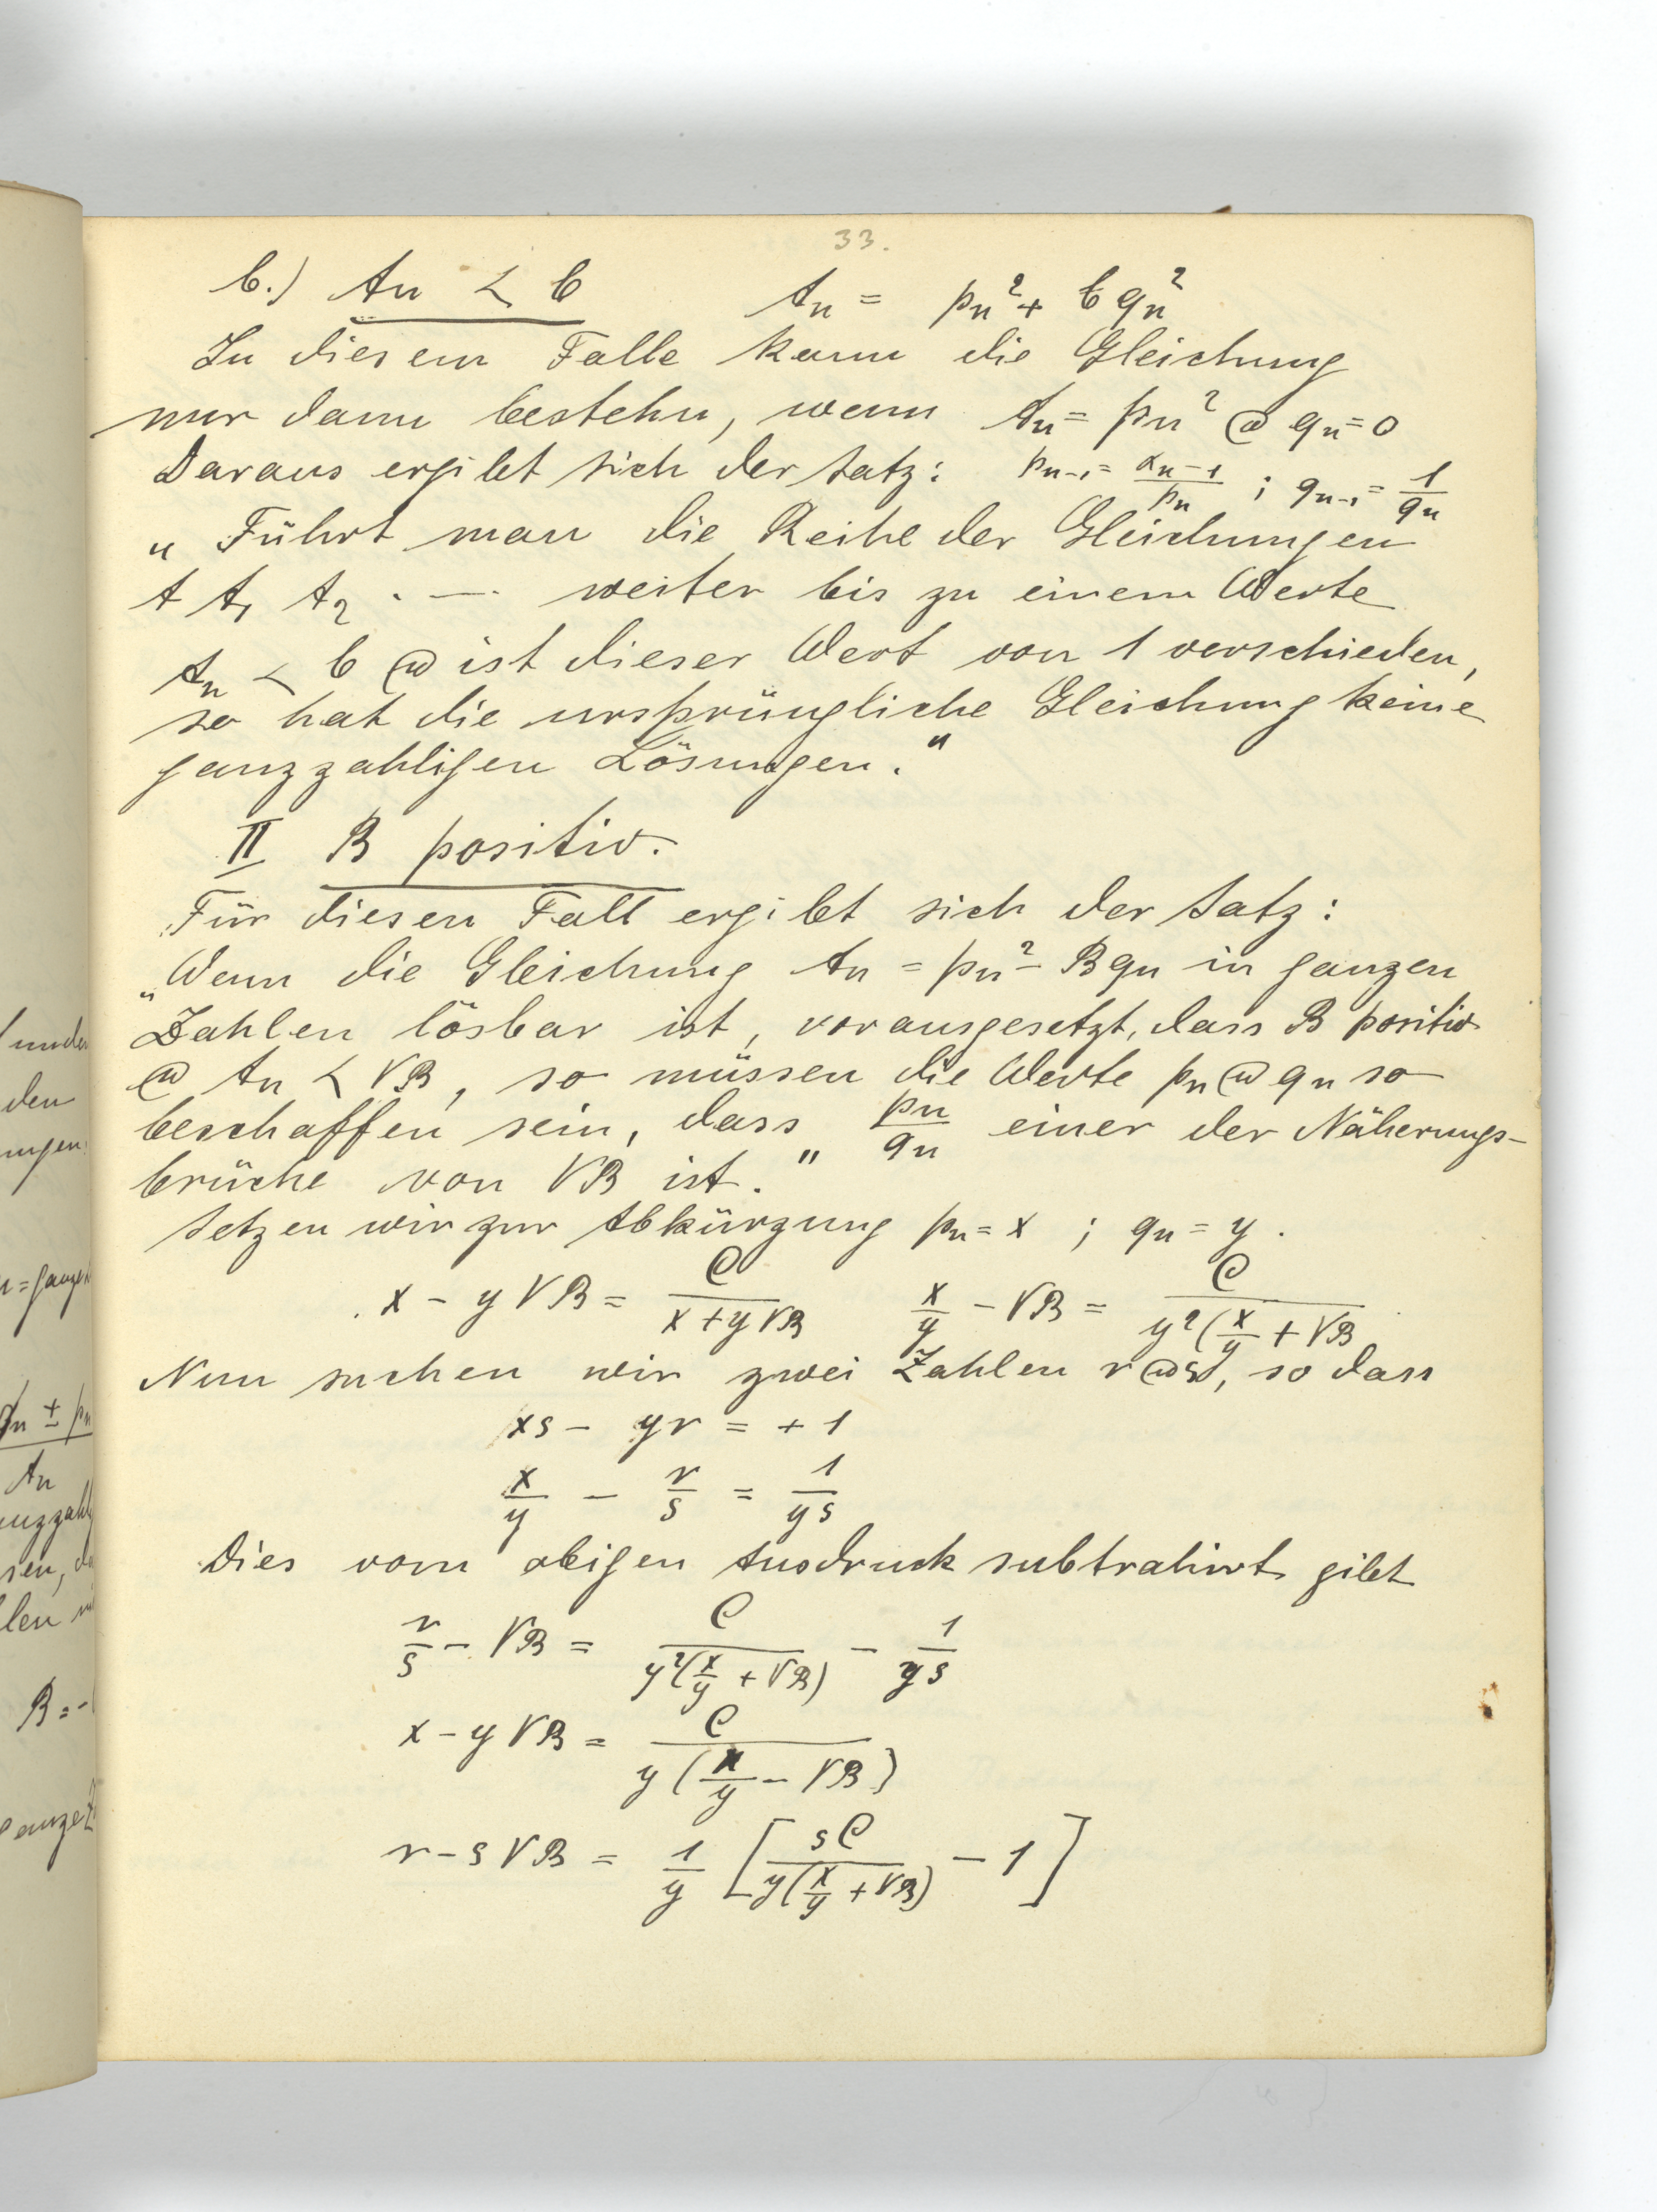 33.
b.) An < b An = pn² + b qn²
In diesem Falle kann die Gleichung
nur dann bestehn, wenn An = pn² @ qn = 0
Daraus ergibt sich der Satz: pn-1 = αn-1/pn ; qn-1 = 1/qn
„Führt man die Reihe der Gleichungen
A A1 A2 . — . weiter bis zu einem Werte
An < b @ ist dieser Wert von 1 verschieden,
so hat die ursprüngliche Gleichung keine
ganzzahligen Lösungen."
II B positiv.
Für diesen Fall ergibt sich der Satz:
„Wenn die Gleichung An = pn² - Bqn in ganzen
Zahlen lösbar ist, vorausgesetzt, dass B positiv
@ An < √B, so müssen die Werte pn @ qn so
beschaffen sein, dass pn/qn einer der Näherungs-
brüche von √B ist."
Setzen wir zur Abkürzung pn = x ; qn = y .
x - y√B = C/(x + y√B) x/y - √B = C/(y²(x/y + √B
Nun suchen wir zwei Zahlen r @ s, so dass
xs - yr = + 1
x/y - r/s = 1/ys
Dies vom obigen Ausdruck subtrahirt gibt
r/s - √B = C/(y²(x/y + √B)) - 1/ys
x - y√B = C/(y(x/y - √B))
r - s√B = 1/y [sC/(y(x/y + √B)) - 1]